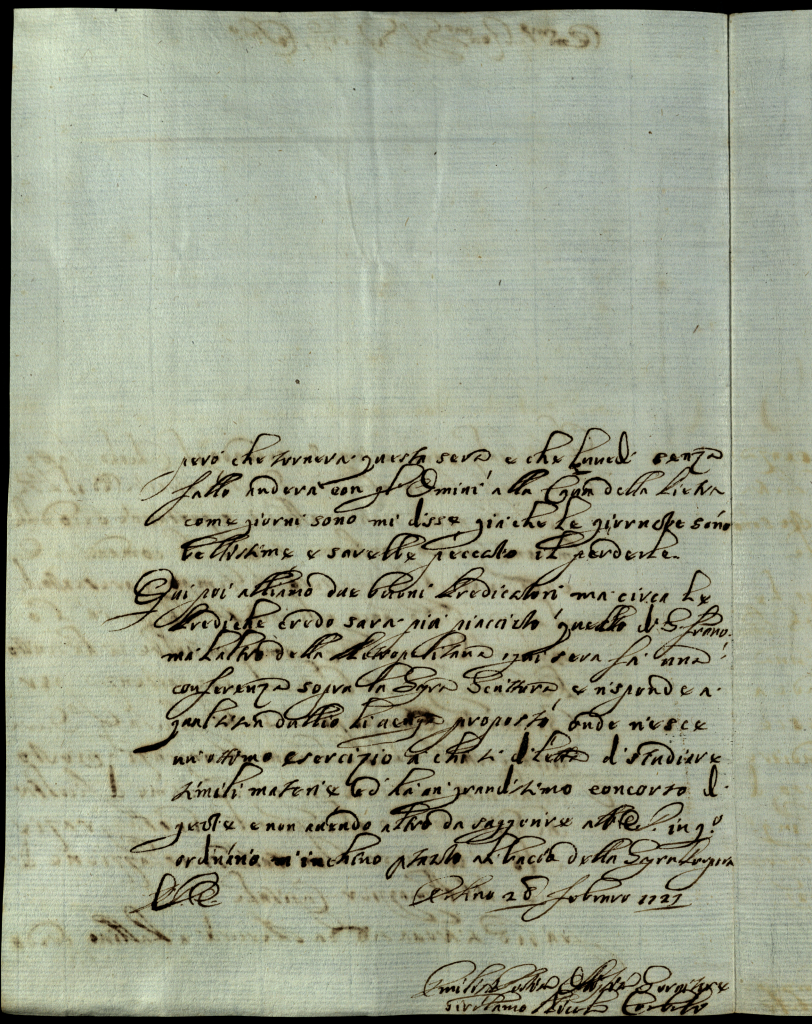 però che tornera questa sera e che lunedi senza
fallo anderà con gl' Omini alla Cqua della Pietra
come giorni sono mi disse già che le giornate sono
bellissime e sarebbe peccato il perderle.
Qui poi abbiamo due buoni Predicatori ma circa le
Prediche credo sarà più piacciuto quello di S. Franco.
ma l'altro della Metropolitana ogni sera fa una
conferenza sopra la Sgra Scittura e risponde a
qualsisia dubbio li venga proposto, onde riesce
un ottimo esercizio a chi si diletta di studiare
simili materie ed ha un grandissimo concorso di
gente e non avendo altro da soggionire in q.o
ordinario m'inchino al baccio della Sgra Porpora
Urbino 28 Febraro 1727
Girolamo